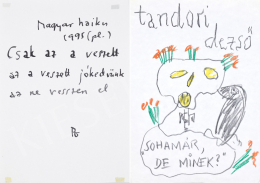 Magyar haiku
(1995 (pl.)
Csak az a veszett
az a veszett jókedvünk
az ne vesszen el
tandori
dezső
"SOHAMÁR,
DE MINEK?"